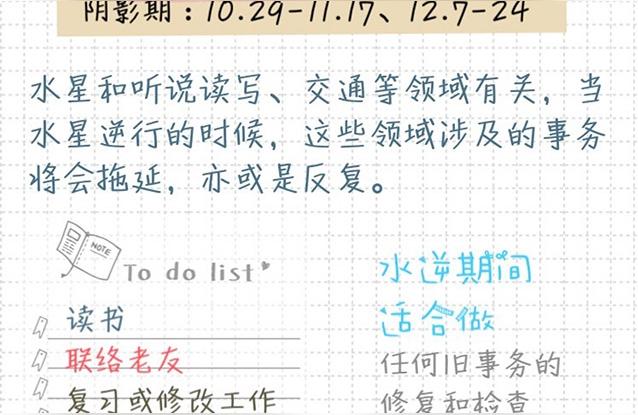 阴影期：10.29-11.17、12.7-24
水星和听说读写、交通等领域有关，当
水星逆行的时候，这些领域涉及的事务
将会拖延，亦或是反复。
NOTE
To do list
读书
联络老友
复习或修改工作
水逆期间
适合做
任何旧事务的
修复和检查